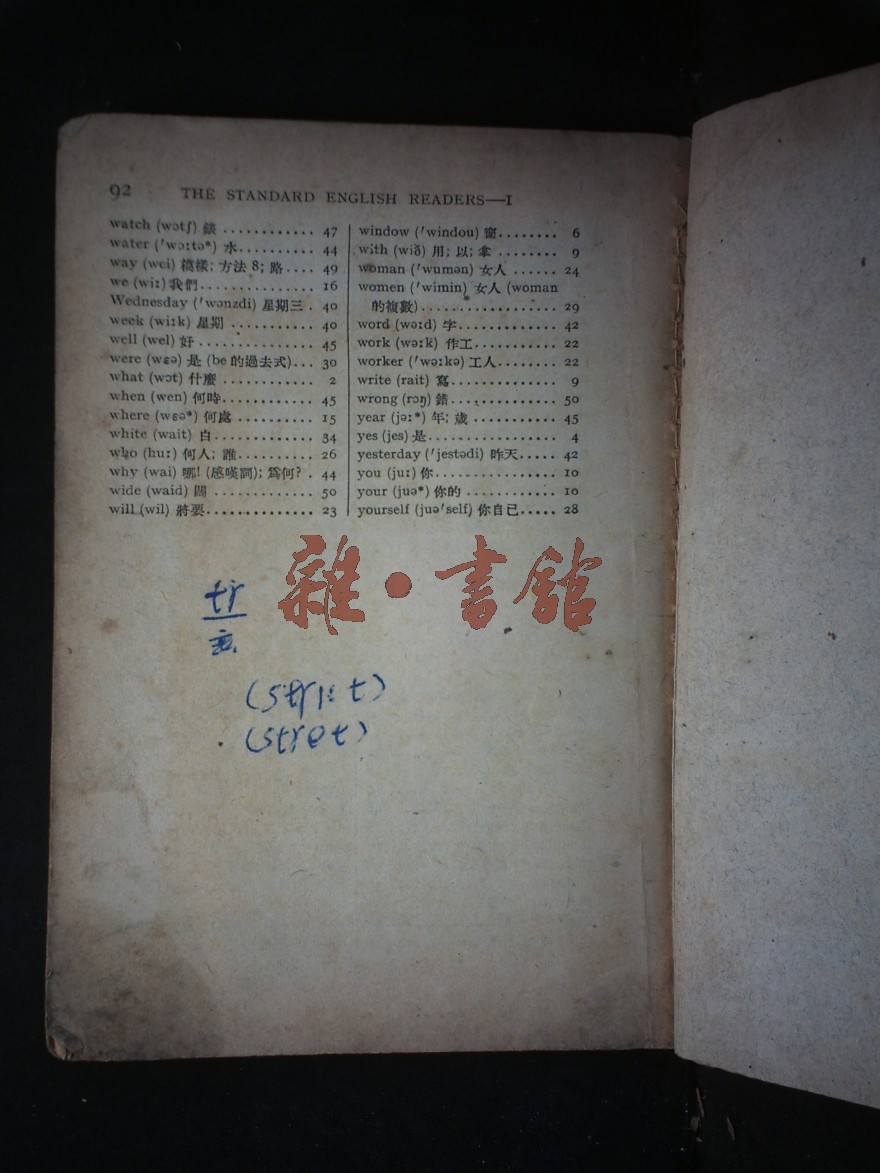 92 THE STANDARD ENGLISH READERS—I
watch (wɔtʃ) 錶 ............ 47
water (ˈwɔːtə*) 水.......... 44
way (wei) 模樣; 方法 8; 路.... 49
we (wiː) 我們............... 16
Wednesday (ˈwənzdi) 星期三 . 40
week (wiːk) 星期 ........... 40
well (wel) 好 ............... 45
were (wɛə) 是 (be 的過去式)... 30
what (wɔt) 什麼 ............ 2
when (wen) 何時............ 45
where (wɛə*) 何處 .......... 15
white (wait) 白............. 34
who (huː) 何人; 誰.......... 26
why (wai) 哪! (感嘆詞); 爲何? . 44
wide (waid) 闊 ............. 50
will (wil) 將要.............. 23
window (ˈwindou) 窗........ 6
with (wið) 用; 以; 拿 ........ 9
woman (ˈwumən) 女人 ...... 24
women (ˈwimin) 女人 (woman
的複數).................. 29
word (wəːd) 字............. 42
work (wəːk) 作工........... 22
worker (ˈwəːkə) 工人........ 22
write (rait) 寫.............. 9
wrong (rɔŋ) 錯.............. 50
year (jəː*) 年; 歲 ........... 45
yes (jes) 是................. 4
yesterday (ˈjestədi) 昨天..... 42
you (juː) 你................ 10
your (juə*) 你的 ............ 10
yourself (juəˈself) 你自已..... 28
雜·書館
tr
(striːt)
(stret)